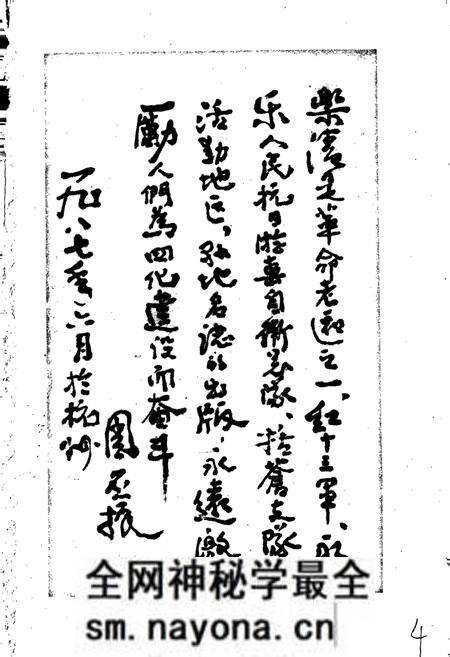 樂清是革命老区之一、紅十三軍、永
乐人民抗日游击自衛总隊、括蒼支隊
活動地区，地名誌的出版，永遠激
勵人們為四化建設而奮斗
一九八七年六月於杭州
周丕振
全网神秘学最全
sm.nayona.cn
4